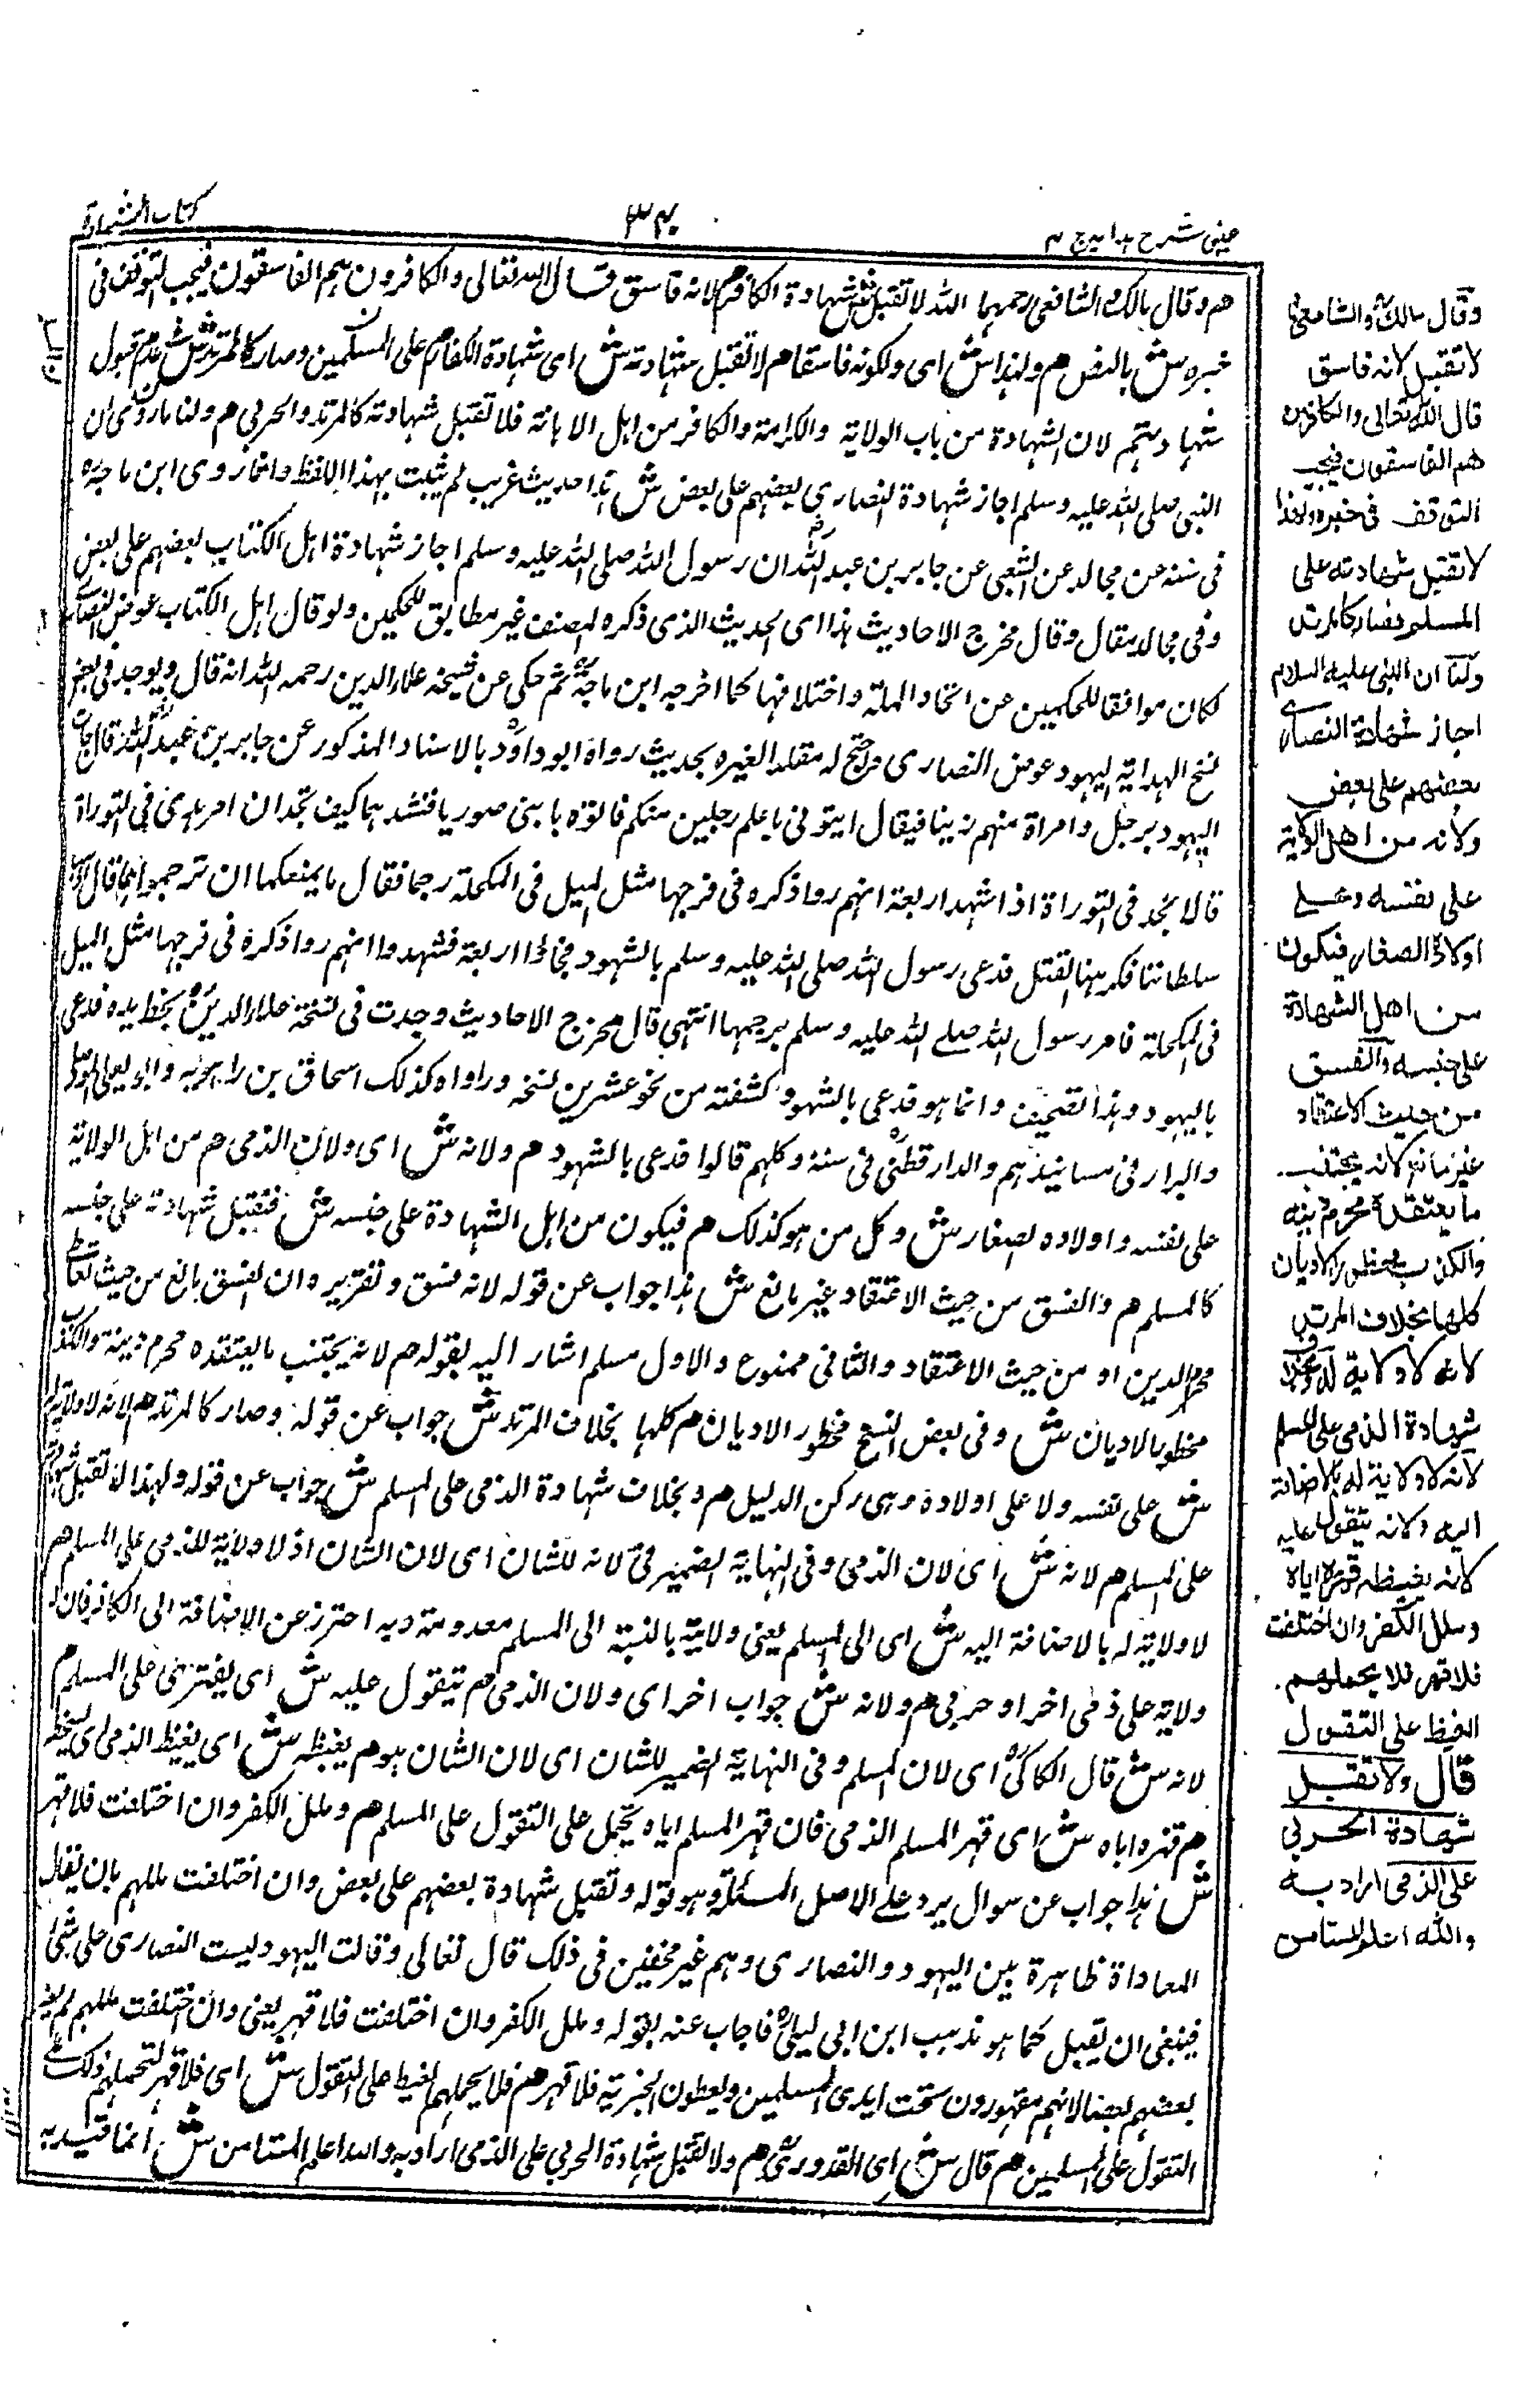 عینی شرح ہدایہ ج ۳
۳۴۰
کتاب الشہادة
م وقال مالک والشافعی رحمہما اللہ لا تقبل ش شہادة الکافر م لانہ فاسق قال اللہ تعالی والکافرون ہم الفاسقون فیجب التوقف فی
خبرہ ش بالنص م ولہذا ش ای ولکونہ فاسقا م لا تقبل شہادتہ ش ای شہادة الکفار م علی المسلمین وصار کالمرتد ش فی عدم قبول
شہادتہم لان الشہادة من باب الولایة والکرامة والکافر من اہل الاہانة فلا تقبل شہادتہ کالمرتد والحربی م ولنا ما روی ان
النبی صلی اللہ علیہ وسلم اجاز شہادة النصاری بعضہم علی بعض ش ہذا حدیث غریب لم یثبت بہذا اللفظ وانما روی ابن ماجہ
فی سننہ عن مجالد عن الشعبی عن جابر بن عبد اللہ ان رسول اللہ صلی اللہ علیہ وسلم اجاز شہادة اہل الکتاب بعضہم علی بعض
وفی مجالد مقال وقال مخرج الاحادیث ہذا ای الحدیث الذی ذکرہ المصنف غیر مطابق للحکمین ولو قال اہل الکتاب عوض النصاری
لکان موافقا للحکمین عن اتحاد الملة واختلافہا کما اخرجہ ابن ماجہ ثم حکی عن شیخہ علاء الدین رحمہ اللہ انہ قال ویوجد فی بعض
نسخ الہدایة الیہود عوض النصاری محتج لہ مقلدا لغیرہ بحدیث رواہ ابو داود بالاسناد المذکور عن جابر بن عبد اللہ قال جاءت
الیہود برجل وامراة منہم زنیا فیقال ایتونی باعلم رجلین منکم فاتوہ بابنی صوریا فنشدہما کیف تجدان امر ہذین فی التوراة
قالا نجد فی التوراة اذا شہد اربعة انہم رواذکرہ فی فرجہا مثل المیل فی المکحلة رجما فقال ما یمنعکما ان ترجموہما قال ذہب
سلطاننا فکرہنا القتل فدعی رسول اللہ صلی اللہ علیہ وسلم بالشہود فجاؤا اربعة فشہدوا انہم رواذکرہ فی فرجہا مثل المیل
فی المکحلة فامر رسول اللہ صلے اللہ علیہ وسلم برجمہا انتہی قال مخرج الاحادیث وجدت فی نسخة علاء الدین بخط یدہ فدعی
بالیہود وہذا تصحیف وانما ہو فدعی بالشہود کشفتہ من نحو عشرین نسخہ ورواہ کذلک اسحاق بن راہویہ وابو یعلی الموصلی
والبزار فی مسانیدہم والدارقطنی فی سننہ وکلہم قالوا فدعی بالشہود م ولانہ ش ای ولان الذمی م من اہل الولایة
علی نفسہ واولادہ الصغار ش وکل من ہو کذلک م فیکون من اہل الشہادة علی جنسہ ش فتقبل شہادتہ علی جنسہ
کالمسلم م والفسق من حیث الاعتقاد غیر مانع ش ہذا جواب عن قولہ لانہ فسق وتقریرہ ان الفسق مانع من حیث تعاطی
محرم الدین او من حیث الاعتقاد والثانی ممنوع والاول مسلم اشار الیہ بقولہ م لانہ یجتنب ما یعتقدہ محرم دینہ والکذب
محظور بالادیان ش وفی بعض النسخ محظور الادیان م کلہا بخلاف المرتد ش جواب عن قولہ وصار کالمرتد م لانہ لا ولایة لہ
ش علی نفسہ ولا علی اولادہ وہی رکن الدلیل م وبخلاف شہادة الذمی علی المسلم ش جواب عن قولہ ولہذا لا تقبل شہادتہ
علی المسلم م لانہ ش ای لان الذمی وفی النہایة الضمیر فی لانہ للشان ای لان الشان اذ لا ولایة للذمی علی المسلم م
لا ولایة لہ بالاضافة الیہ ش ای الی المسلم یعنی ولایتہ بالنسبة الی المسلم معدومة وبہ احترز عن الاضافة الی الکافر فان لہ
ولایة علی ذمی اخر او حربی م ولانہ ش جواب اخر ای ولان الذمی م یتقول علیہ ش ای یفتری علی المسلم م
لانہ ش قال الکاکی ای لان المسلم وفی النہایة الضمیر للشان ای لان الشان ہو م یغیظہ ش ای یغیظ الذمی ای یسخطہ
م قہرہ ایاہ ش ای قہر المسلم الذمی فان قہر المسلم ایاہ یحمل علی التقول علی المسلم م وملل الکفر وان اختلفت فلا قہر
ش ہذا جواب عن سوال یرد علے الاصل المسئلة وہو قولہ وتقبل شہادة بعضہم علی بعض وان اختلفت مللہم بان یقال
المعاداة ظاہرة بین الیہود والنصاری وہم غیر مخفین فی ذلک قال تعالی وقالت الیہود لیست النصاری علی شئ
فینبغی ان یقبل کما ہو مذہب ابن ابی لیلی فاجاب عنہ بقولہ وملل الکفر وان اختلفت فلا قہر یعنی وان اختلفت مللہم لم یقہر
بعضہم بعضا لانہم مقہورون تحت ایدی المسلمین ویعطون الجزیة فلا قہر م فلا یحملہم الغیظ علی التقول ش ای فلا قہر لتحملہم ذلک علی
التقول علی المسلمین م قال ش ای القدوری م ولا تقبل شہادة الحربی علی الذمی اراد بہ واللہ اعلم المستامن ش انما قید بہ
وقال مالک والشافعی
لا تقبل لانہ فاسق
قال اللہ تعالی والکافرون
هم الفاسقون فیجب
التوقف فی خبرہ ولهذا
لا تقبل شهادتہ علی
المسلم فصار کالمرتد
ولنا ان النبی علیہ السلام
اجاز شهادة النصاری
بعضهم علی بعض
ولانہ من اهل الولایة
علی نفسہ وعلے
اولادہ الصغار فیکون
من اهل الشهادة
علی جنسہ والفسق
من حیث الاعتقاد
غیر مانع لانہ یجتنب
ما یعتقدہ محرم دینہ
والکذب محظور الادیان
کلها بخلاف المرتد
لانہ لا ولایة لہ وبخلاف
شهادة الذمی علی المسلم
لانہ لا ولایة لہ بالاضافة
الیہ ولانہ یتقول علیہ
لانہ یغیظہ قهرہ ایاہ
وملل الکفر وان اختلفت
فلا قهر فلا یحملهم
الغیظ علی التقول
قال ولا تقبل
شهادة الحربی
علی الذمی اراد بہ
واللہ اعلم المستامن